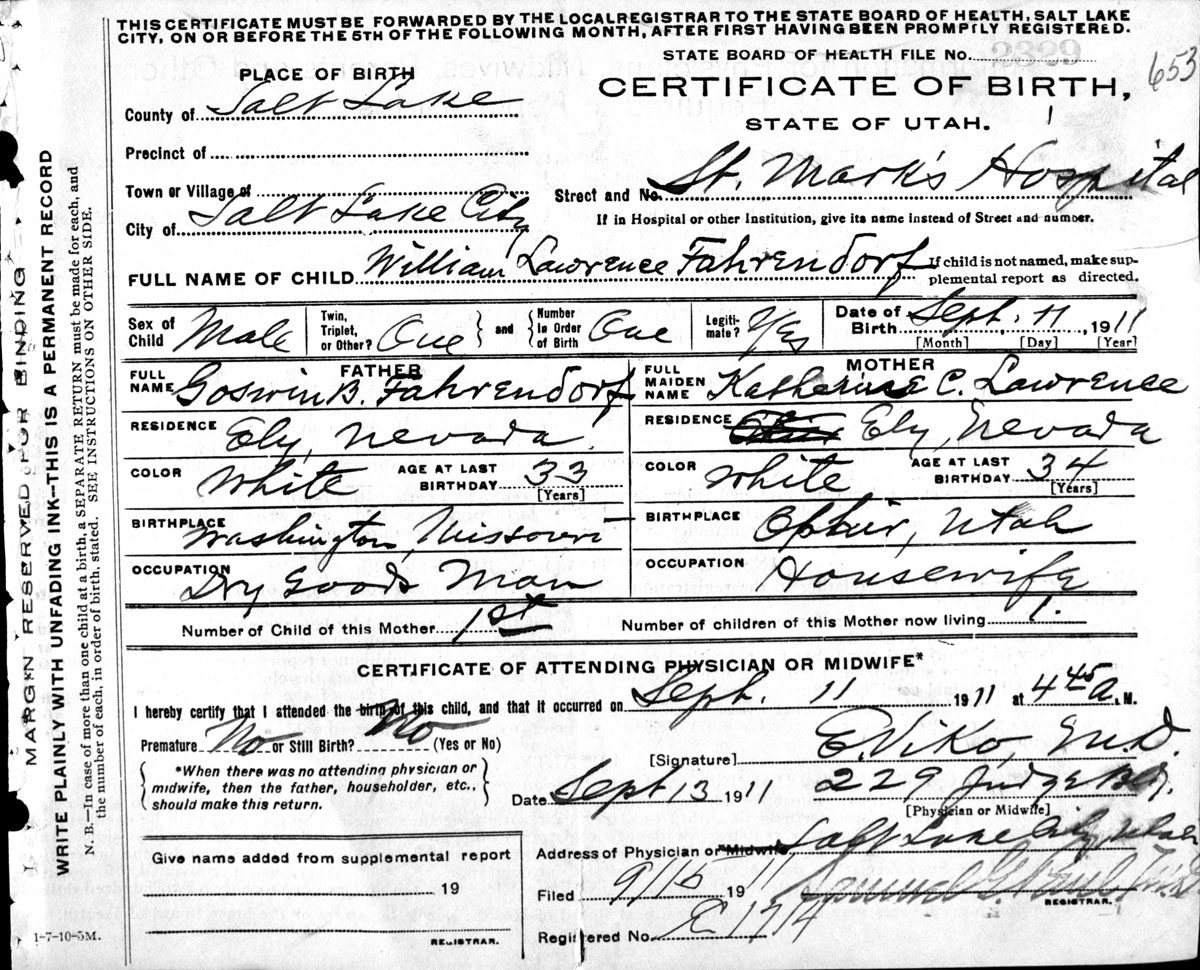 THIS CERTIFICATE MUST BE FORWARDED BY THE LOCAL REGISTRAR TO THE STATE BOARD OF HEALTH, SALT LAKE
CITY, ON OR BEFORE THE 5TH OF THE FOLLOWING MONTH, AFTER FIRST HAVING BEEN PROMPTLY REGISTERED.
STATE BOARD OF HEALTH FILE No.
653
PLACE OF BIRTH
CERTIFICATE OF BIRTH,
County of Salt Lake
STATE OF UTAH.
Precinct of
Town or Village of
Street and No. St. Mark's Hospital
City of Salt Lake City
If in Hospital or other Institution, give its name instead of Street and number.
FULL NAME OF CHILD William Lawrence Fahrendorf
If child is not named, make sup-
plemental report as directed.
Sex of Child Male
Twin, Triplet, or Other? One
and
Number in Order of Birth One
Legiti-mate? Yes
Date of Birth Sept. 11, 1911
[Month] [Day] [Year]
FATHER
FULL NAME Goswin B. Fahrendorf
MOTHER
FULL MAIDEN NAME Katherine C. Lawrence
RESIDENCE Ely, Nevada
RESIDENCE Ely, Nevada
COLOR White AGE AT LAST BIRTHDAY 33 [Years]
COLOR White AGE AT LAST BIRTHDAY 34 [Years]
BIRTHPLACE Washington, Missouri
BIRTHPLACE Ophir, Utah
OCCUPATION Dry Goods Man
OCCUPATION Housewife
Number of Child of this Mother 1st
Number of children of this Mother now living 1.
CERTIFICATE OF ATTENDING PHYSICIAN OR MIDWIFE*
I hereby certify that I attended the birth of this child, and that it occurred on Sept. 11 1911 at 4 45 A. M.
Premature No or Still Birth? No (Yes or No)
[Signature] E. Viko, M.D.
*When there was no attending physician or
midwife, then the father, householder, etc.,
should make this return.
Date Sept 13 1911
229 Judge Bldg.
[Physician or Midwife]
Address of Physician or Midwife Salt Lake City Utah
Give name added from supplemental report
19
REGISTRAR.
Filed 9/16 1911
REGISTRAR.
Registered No. 1714
1-7-10-5M.
MARGIN RESERVED FOR BINDING
WRITE PLAINLY WITH UNFADING INK--THIS IS A PERMANENT RECORD
N. B.—In case of more than one child at a birth, a SEPARATE RETURN must be made for each, and
the number of each, in order of birth, stated. SEE INSTRUCTIONS ON OTHER SIDE.